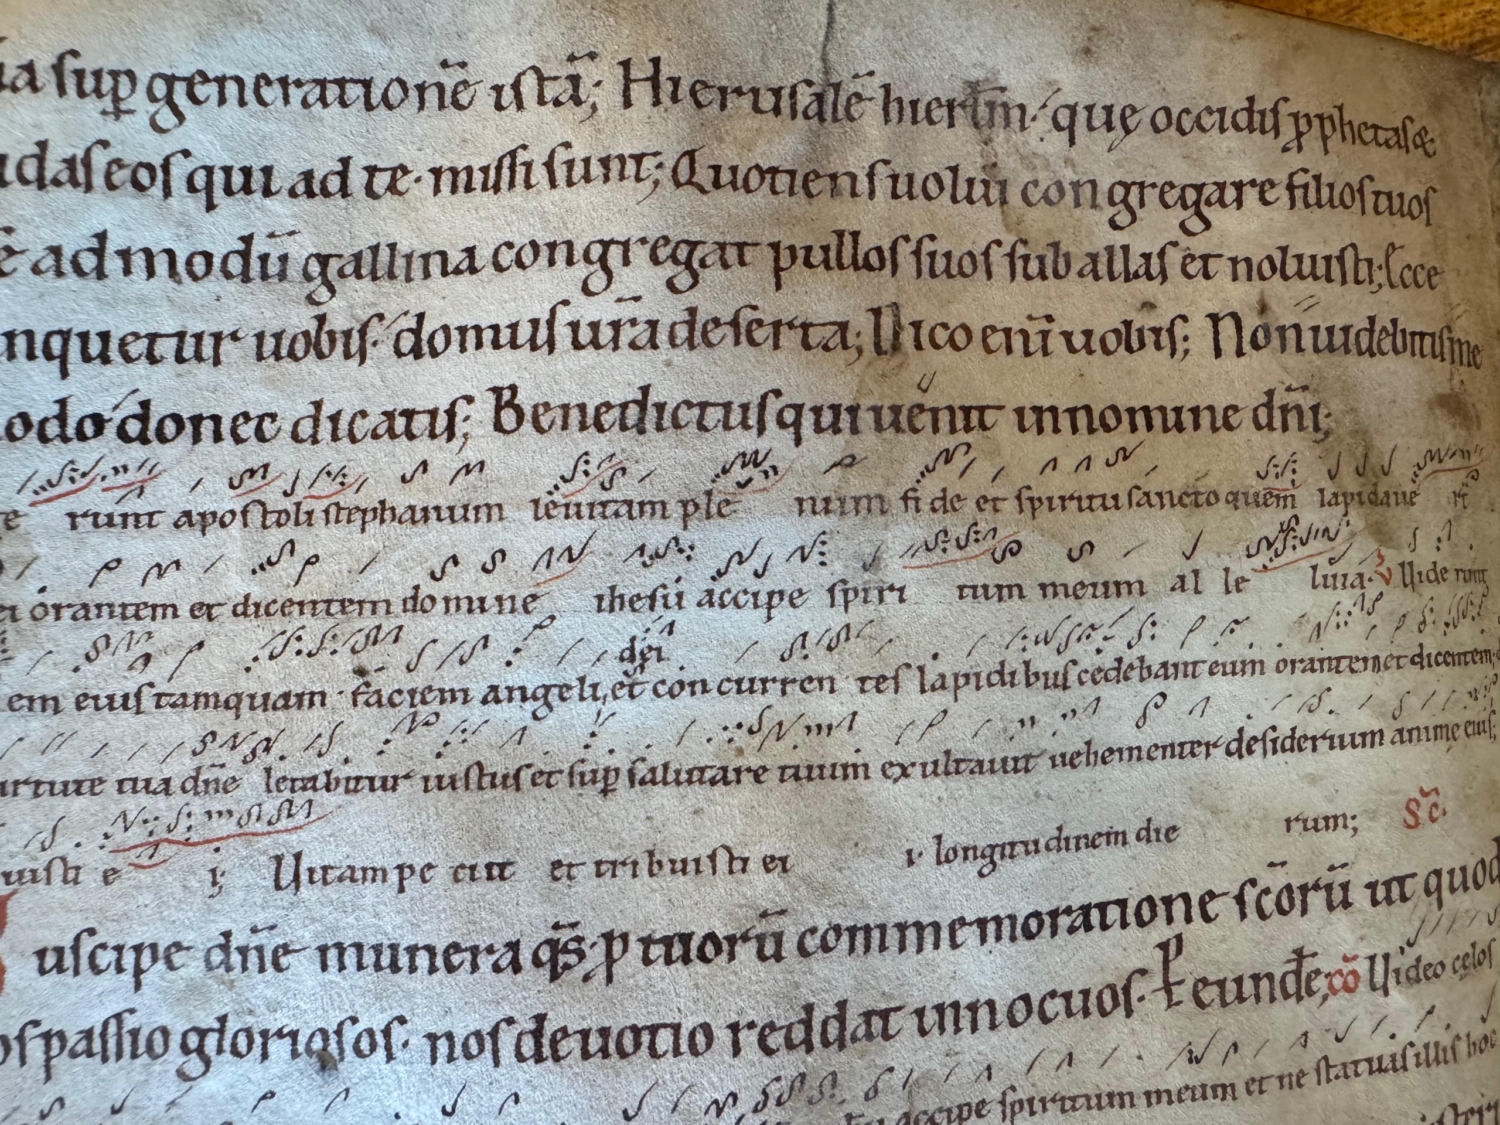 ia sup generationē istā; Hierusalē hierlm̄ quę occidis pphetas &
idas eos qui ad te · missi sunt; Quotiens uolui congregare filios tuos
ad modū gallina congregat pullos suos sub allas et noluisti; Ecce
nquetur uobis domus ur̄a deserta; Dico eni uobis; Non uidebitis me
odo donec dicatis; Benedictus qui uenit in nomine dn̄i;
e runt apostoli stephanum leuitam ple num fi de et spiritu sancto quem lapidaue rt
ei orantem et dicentem domine ihesu accipe spiri tum meum al le luia · V Uide runt
em eius tamquam · faciem angeli, dei et con curren tes lapidibus cedebant eum orantem et dicentem;
irtute tua dn̄e letabitur iustus et sup salutare tuum exultauit uehementer desiderium anime eius;
uisti e i; Uitam pe tiit et tribuisti ei i · longitudinem die rum; Sc̄
uscipe dn̄e munera qs̄ · p tuorū commemoratione sc̄orū ut quod
os passio gloriosos · nos deuotio reddat innocuos · P eunde; cō Uideo celos
accipe spiritum meum et ne statuas illis hoc